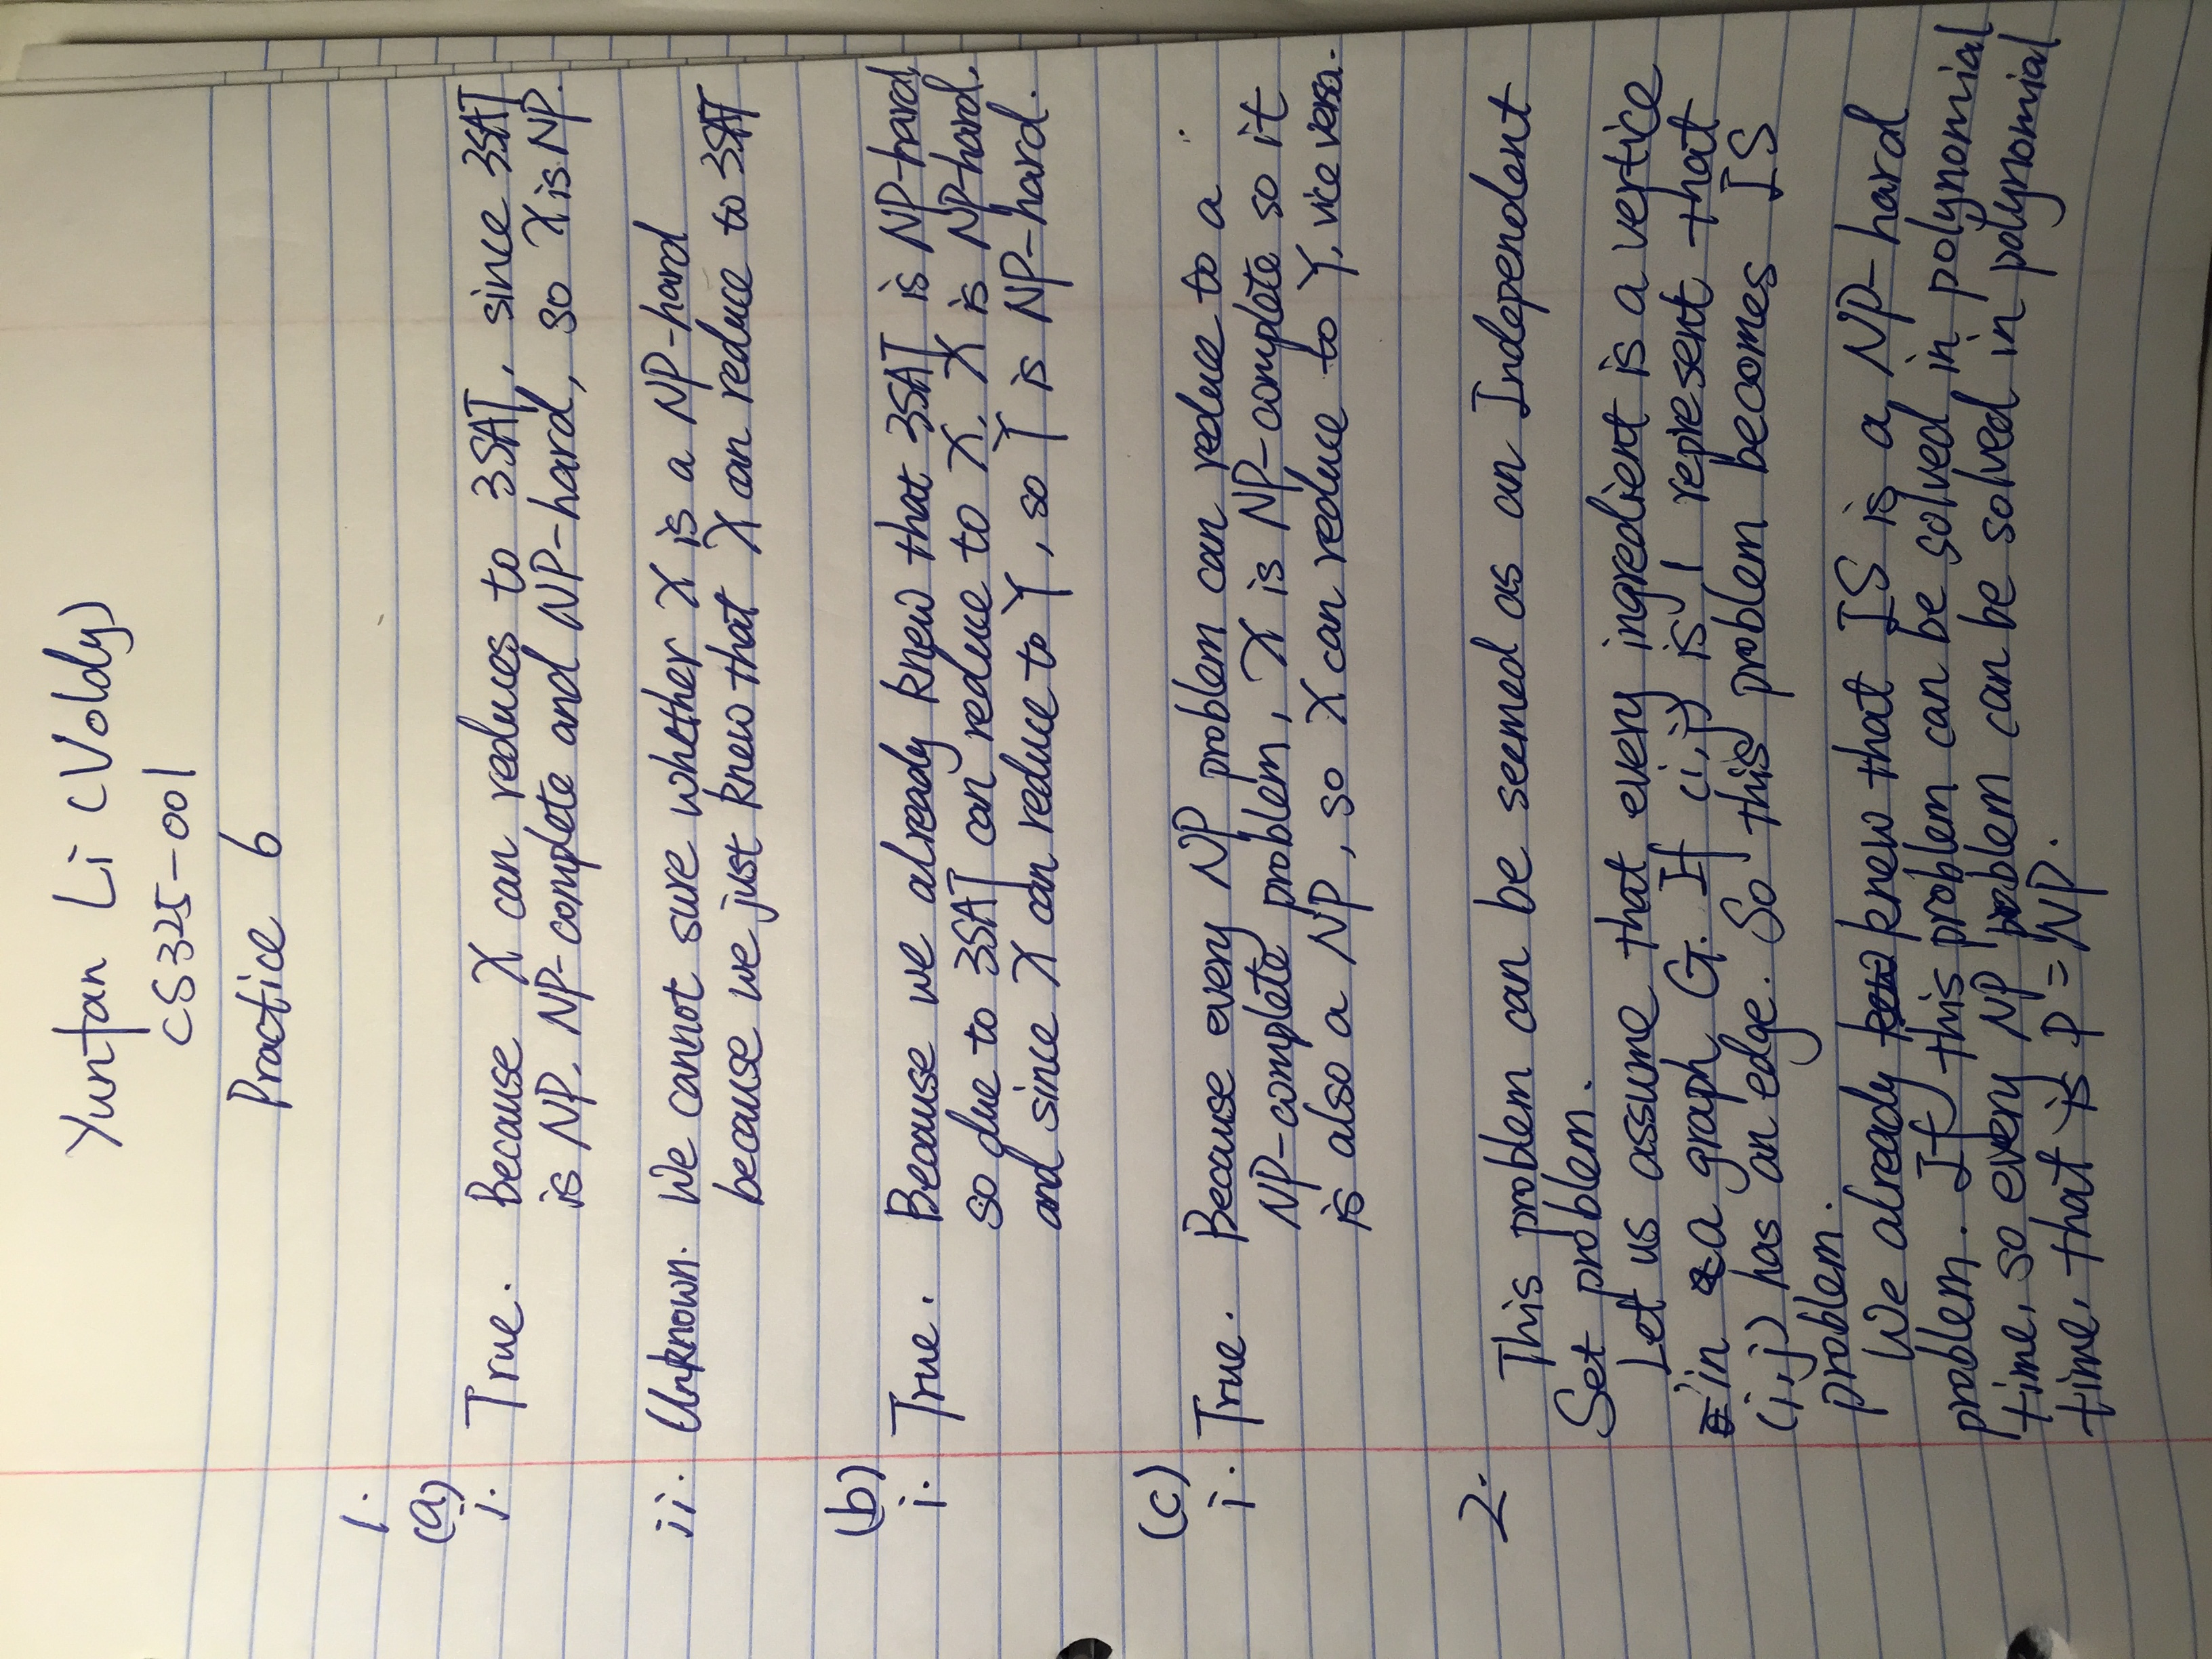 Yunfan Li (Voldy)
CS325-001
Practice 6
1.
(a)
i. True. Because X can reduces to 3SAT, since 3SAT
is NP, NP-complete and NP-hard, so X is NP.
ii. Unknown. We cannot sure whether X is a NP-hard
because we just knew that X can reduce to 3SAT
(b)
i. True. Because we already knew that 3SAT is NP-hard,
so due to 3SAT can reduce to X, X is NP-hard,
and since X can reduce to Y, so Y is NP-hard.
(c)
i. True. Because every NP problem can reduce to a
NP-complete problem, X is NP-complete so it
is also a NP, so X can reduce to Y, vice versa.
2.
This problem can be seemed as an Independent
Set problem.
Let us assume that every ingredient is a vertice
in a graph G. If (i,j) is 1 represent that
(i,j) has an edge. So this problem becomes IS
problem.
We already knew that IS is a NP-hard
problem. If this problem can be solved in polynomial
time, so every NP problem can be solved in polynomial
time, that is P = NP.